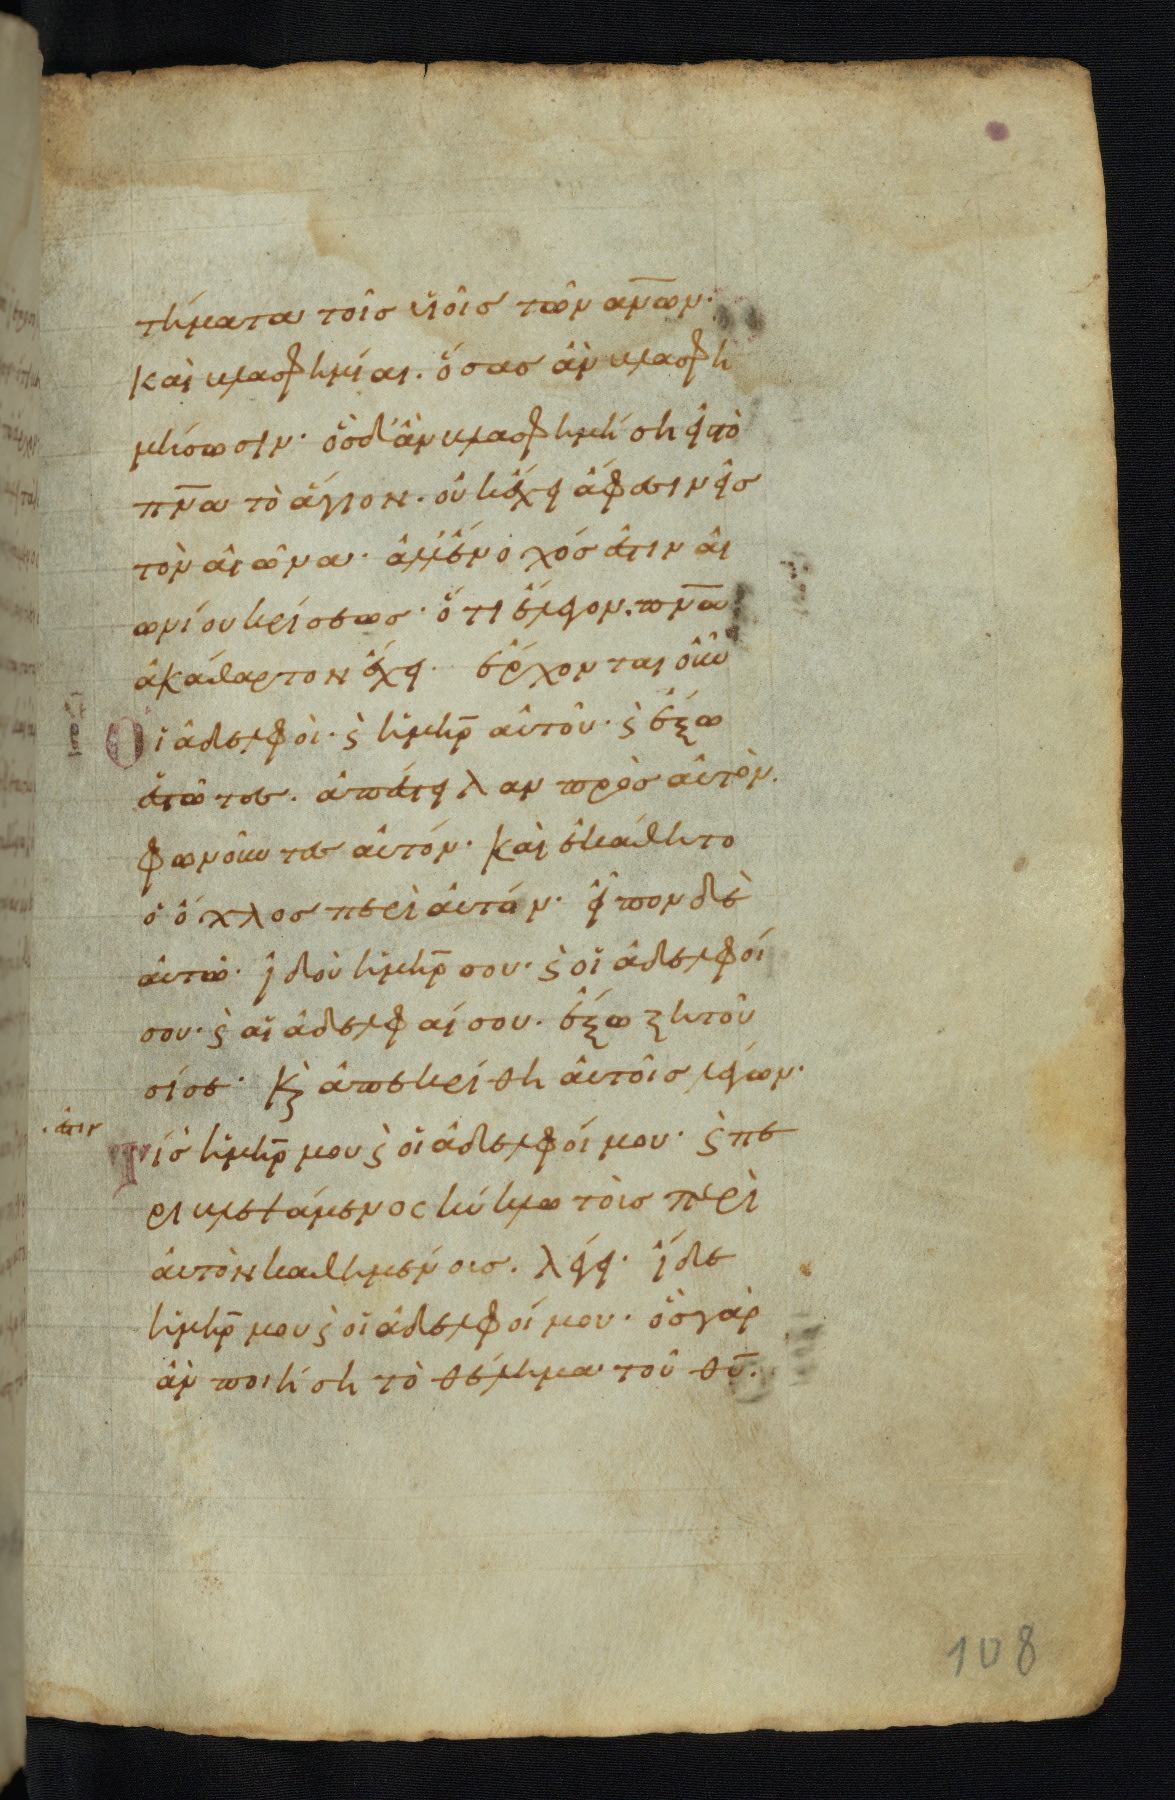 τήματα τοῖσ υἱοῖσ τῶν ανων·
καὶ βλασφημίαι. ὅσασ ἂν βλασφη
μήσωσιν· ὃσ δ' ἂν βλασφημήση εἰσ τὸ
πνα τὸ ἅγιον. οὐκ ἔχει ἄφεσιν εἰσ
τὸν αἰῶνα· ἀλλ' ἔνοχόσ ἐστιν αἰ
ωνίου κρίσεωσ· ὅτι ἔλεγον. πνα
ἀκάθαρτον ἔχει. ἔρχονται οὖν
Οἱ ἀδελφοὶ· ϗ ἡ μηρ αὐτοῦ· ϗ ἔξω
ἑστῶτεσ. ἀπέστειλαν πρὸσ αὐτὸν.
φωνοῦντεσ αὐτόν· καὶ ἐκάθητο
ὁ ὄχλοσ περὶ αὐτόν· εἶπον δὲ
αὐτῶ· ἰδοὺ ἡ μηρ σου· ϗ οἱ ἀδελφοί
σου· ϗ αἱ ἀδελφαί σου. ἔξω ζητοῦ
σί σε· ϗ ἀπεκρίθη αὐτοῖσ λέγων·
.ἐστιν
Τίσ ἡ μηρ μου ϗ οἱ ἀδελφοί μου· ϗ πε
ριβλεψάμενος κύκλω τοὺσ περὶ
αὐτὸν καθημένουσ. λέγει· ἴδε
ἡ μηρ μου ϗ οἱ ἀδελφοί μου· ὃσ γὰρ
ἂν ποιήση τὸ θέλημα τοῦ θυ.
108